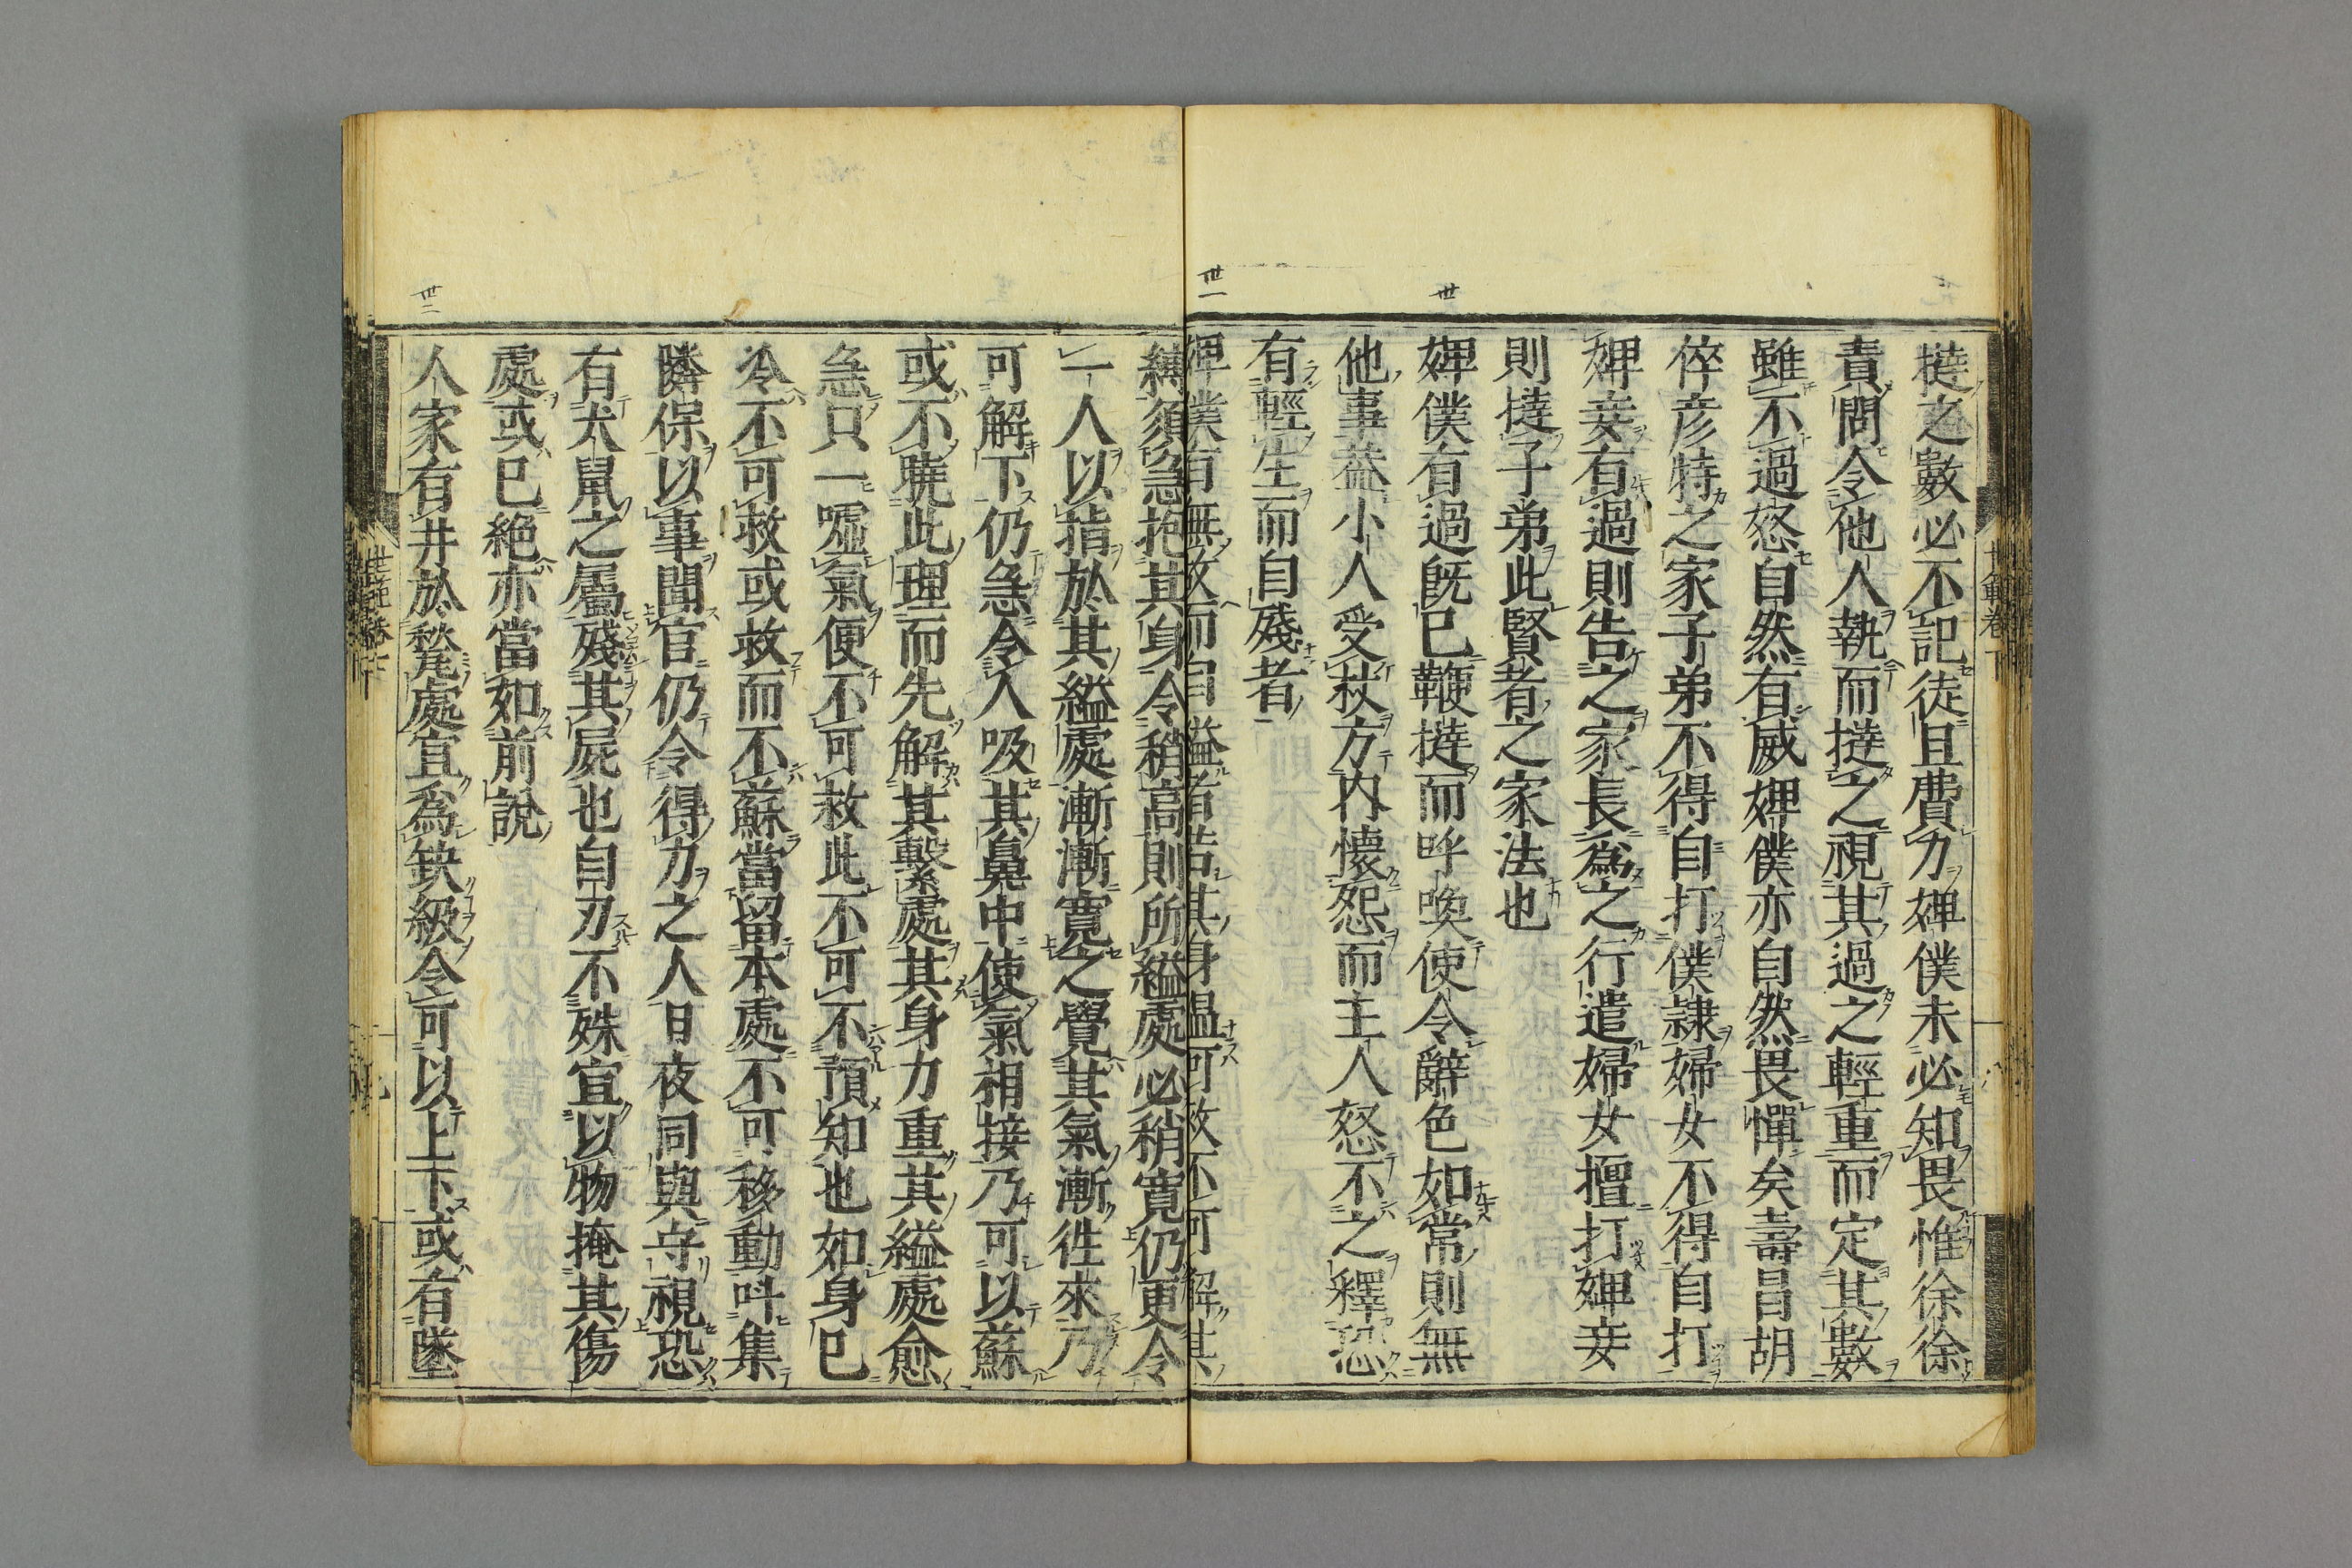 撻之數必不記徒且費力婢僕未必知畏惟徐徐
責問令他人執而撻之視其過之輕重而定其數
雖不過怒自然有威婢僕亦自然畏憚矣壽昌胡
倅彦特之家子弟不得自打僕隷婦女不得自打
婢妾有過則告之家長爲之行遣婦女擅打婢妾
則撻子弟此賢者之家法也
婢僕有過旣已鞭撻而呼喚使令辭色如常則無
他事益小人受杖方內懷怨而主人怒不之釋恐
有輕生而自殘者
婢僕有無故而自縊者若其身温可救不可解其
縛須急抱其身令稍高則所縊處必稍寛仍更令
一人以指於其縊處漸漸寛之覺其氣漸徃來乃
可解下仍急令人吸其鼻中使氣相接乃可以蘇
或不曉此理而先解其繫處其身力重其縊處愈
急只一噓氣便不可救此不可不預知也如身已
冷不可救或救而不蘇當留本處不可移動呌集
隣保以事聞官仍令得力之人日夜同與守視恐
有犬鼠之屬殘其屍也自刃不殊宜以物掩其傷
處或已絶亦當如前說
人家有井於甃處宜爲缺級令可以上下或有墜
世範卷下
八
世範卷下
九
卅
卅一
卅二